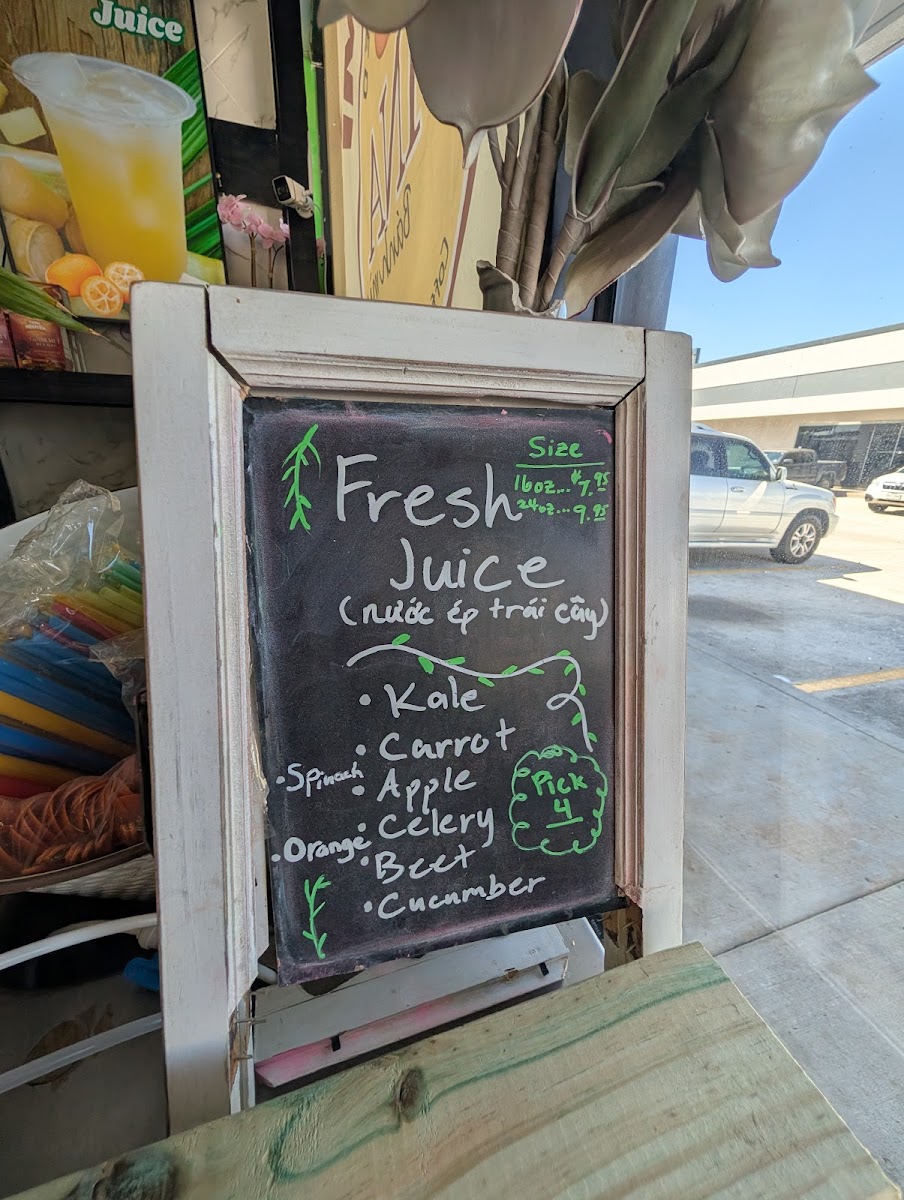 Juice
Fresh
Size
16oz... $7.95
24oz... 9.95
Juice
(nước ép trái cây)
• Kale
• Carrot
• Spinach
• Apple
• Celery
• Orange
• Beet
• Cucumber
Pick
4